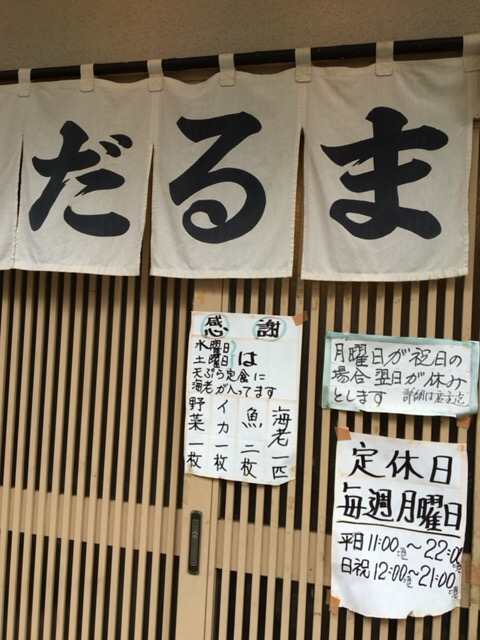 だるま
感謝
水曜日
土曜日 は
天ぷら定食に
海老が入ってます
海老一匹
魚二枚
イカ一枚
野菜一枚
月曜日が祝日の
場合翌日が休み
とします
定休日
毎週月曜日
平日11:00頃〜22:00頃
日祝12:00頃〜21:00頃